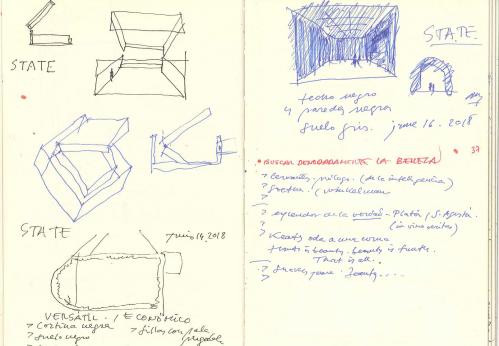 STATE
STATE
junio 14.2018
VERSÁTIL. / ECONÓMICO
> Cortina negra
> suelo negro
> sillas con pala
plegable
STATE
techo negro
y paredes negras
suelo gris. june 16. 2018
• BUSCAR DENODADAMENTE LA BELLEZA • 37
> Cervantes - prólogo (de la inteligencia)
> Goethe. (Winckelmann
> esplendor de la verdad - Platón / S. Agustín.
(in vino veritas)
> Keats ode a una urna
truth is beauty. beauty is truth.
That is all.
> Shakespeare. beauty....